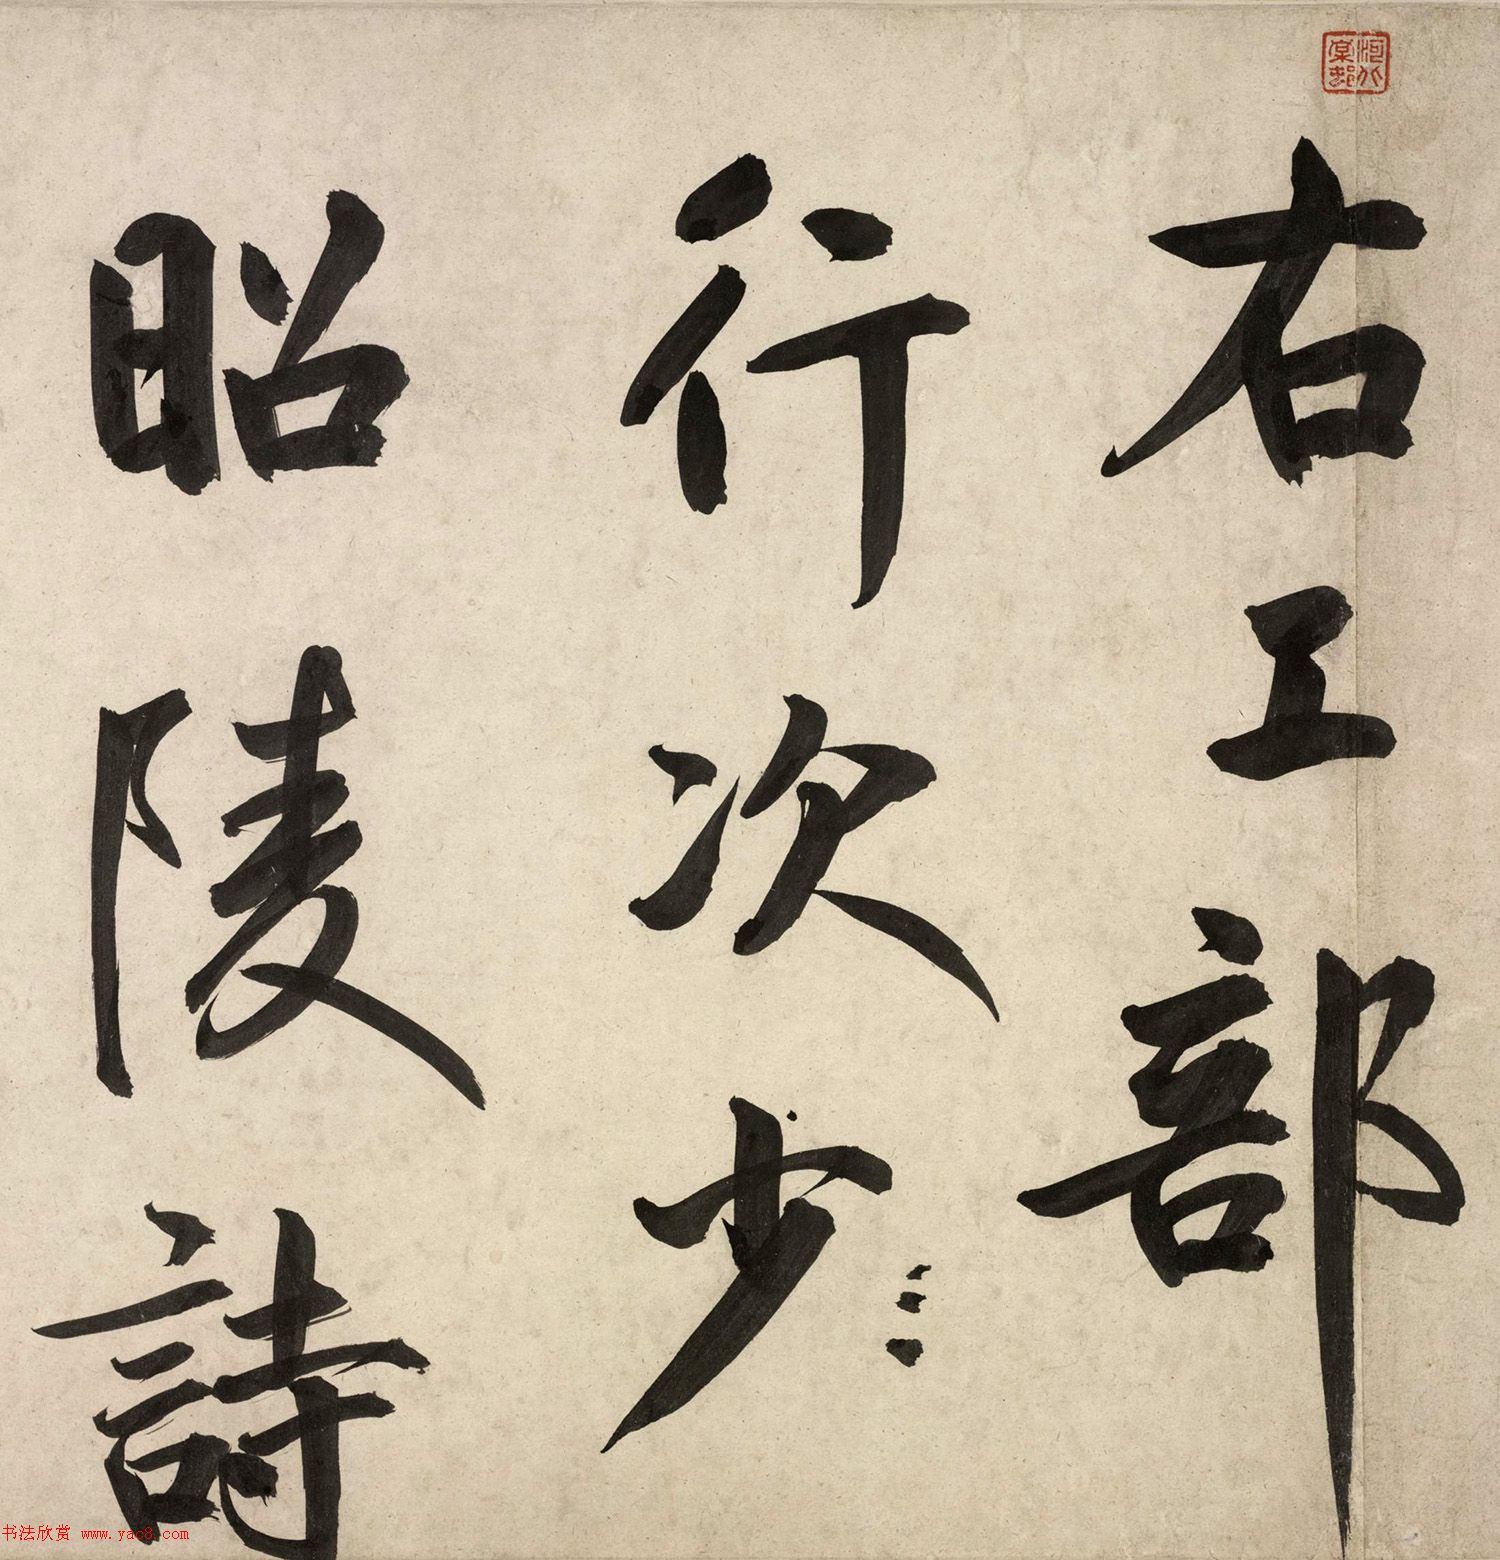 右工部
行次少〻
昭陵詩
书法欣赏 www.yac8.com